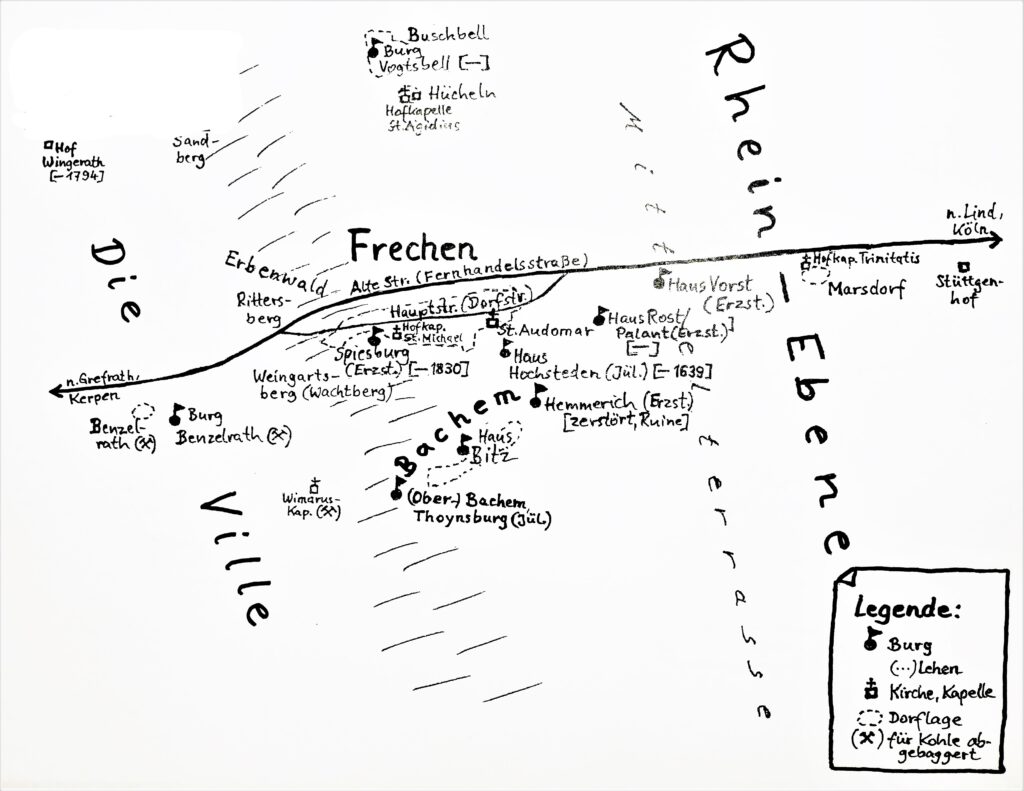 Buschbell
Burg
Vogtsbell [—]
Hücheln
Hofkapelle
St. Ägidius
Rhein – Ebene
Mittelterrasse
Hof
Wingerath
[– 1794]
Sand-
berg
Die Ville
Frechen
Erbenwald
Alte Str. (Fernhandelsstraße)
n. Lind,
Köln
Hofkap. Trinitatis
Marsdorf
Stüttgen-
hof
Ritters-
berg
Hauptstr. (Dorfstr.)
Hofkap.
St. Michael
St. Audomar
Haus Vorst
(Erzst.)
Haus Rost/
Palant (Erzst.)
[—]
Spiesburg
(Erzst.) [– 1830]
Haus
Hochsteden (Jül.) [– 1639]
Weingarts-
berg (Wachtberg)
n. Grefrath,
Kerpen
Benzel-
rath (⚒)
Burg
Benzelrath (⚒)
Bachem
Hemmerich (Erzst.)
[zerstört, Ruine]
Haus
Bitz
(Ober-) Bachem,
Thoynsburg (Jül.)
Wimarus-
Kap. (⚒)
Legende:
Burg
(...) Lehen
Kirche, Kapelle
Dorflage
(⚒) für Kohle ab-
gebaggert